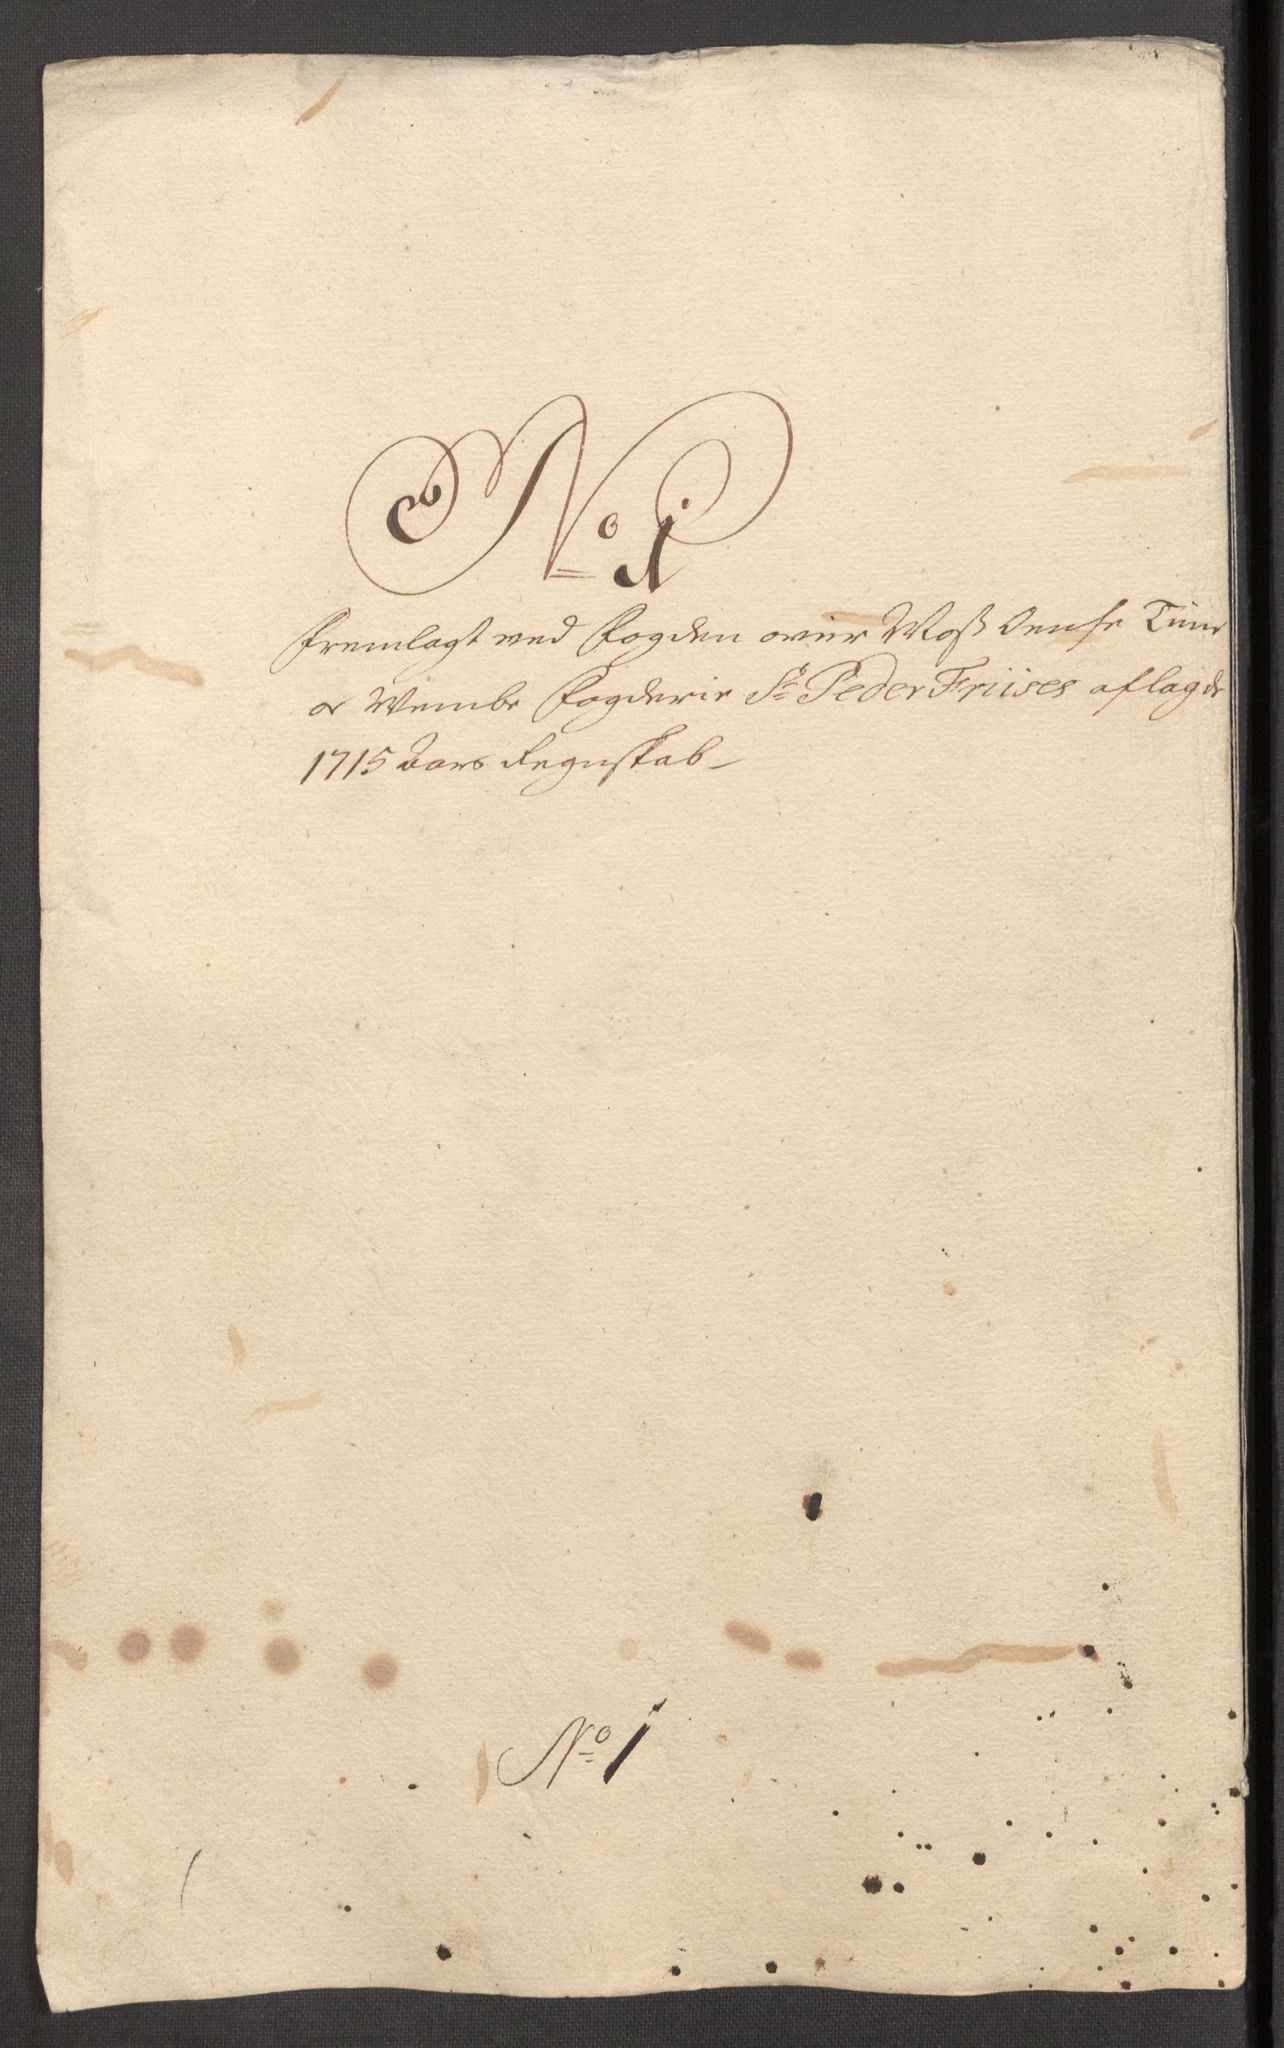 No 1
Fremlagt ved Fogden over Moss Oensøe Tune
og Wembe Fogderie Sr Peder Friises aflagde
1715 Aars Regnskab
No 1